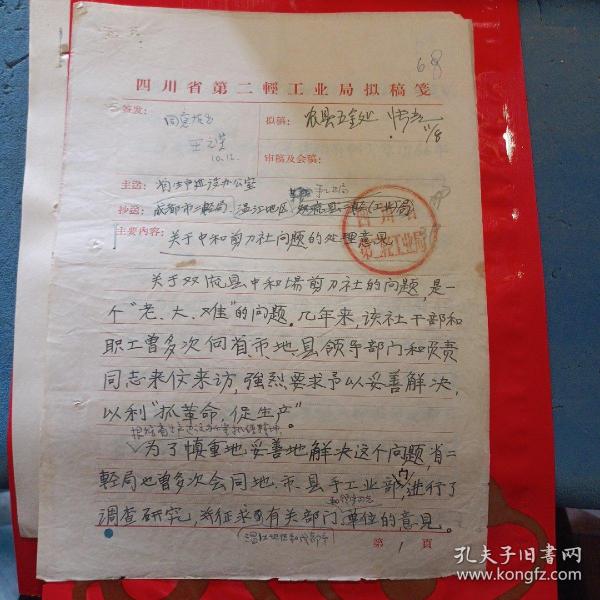 68
四川省第二輕工业局拟稿笺
签发：
同意发出
10.12.
拟稿：农具五金处
11/8
审稿及会稿：
主送：省生产建设办公室
抄送：成都市二轻局 温江地区 手工业局
主要内容：关于中和剪刀社问题的处理意见
第二轻工业局
关于双流县中和场剪刀社的问题，是一
个“老、大、难”的问题。几年来，该社干部和
职工曾多次向省、市、地、县领导部门和负责
同志来信来访，強烈要求予以妥善解决，
以利“抓革命，促生产”。
为了慎重地妥善地解决这个问题，省二
輕局也曾多次会同地、市、县手工业部门，进行了
调查研究，并征求有关部门、单位的意见。
第 1 頁
孔夫子旧书网
www.kongfz.com